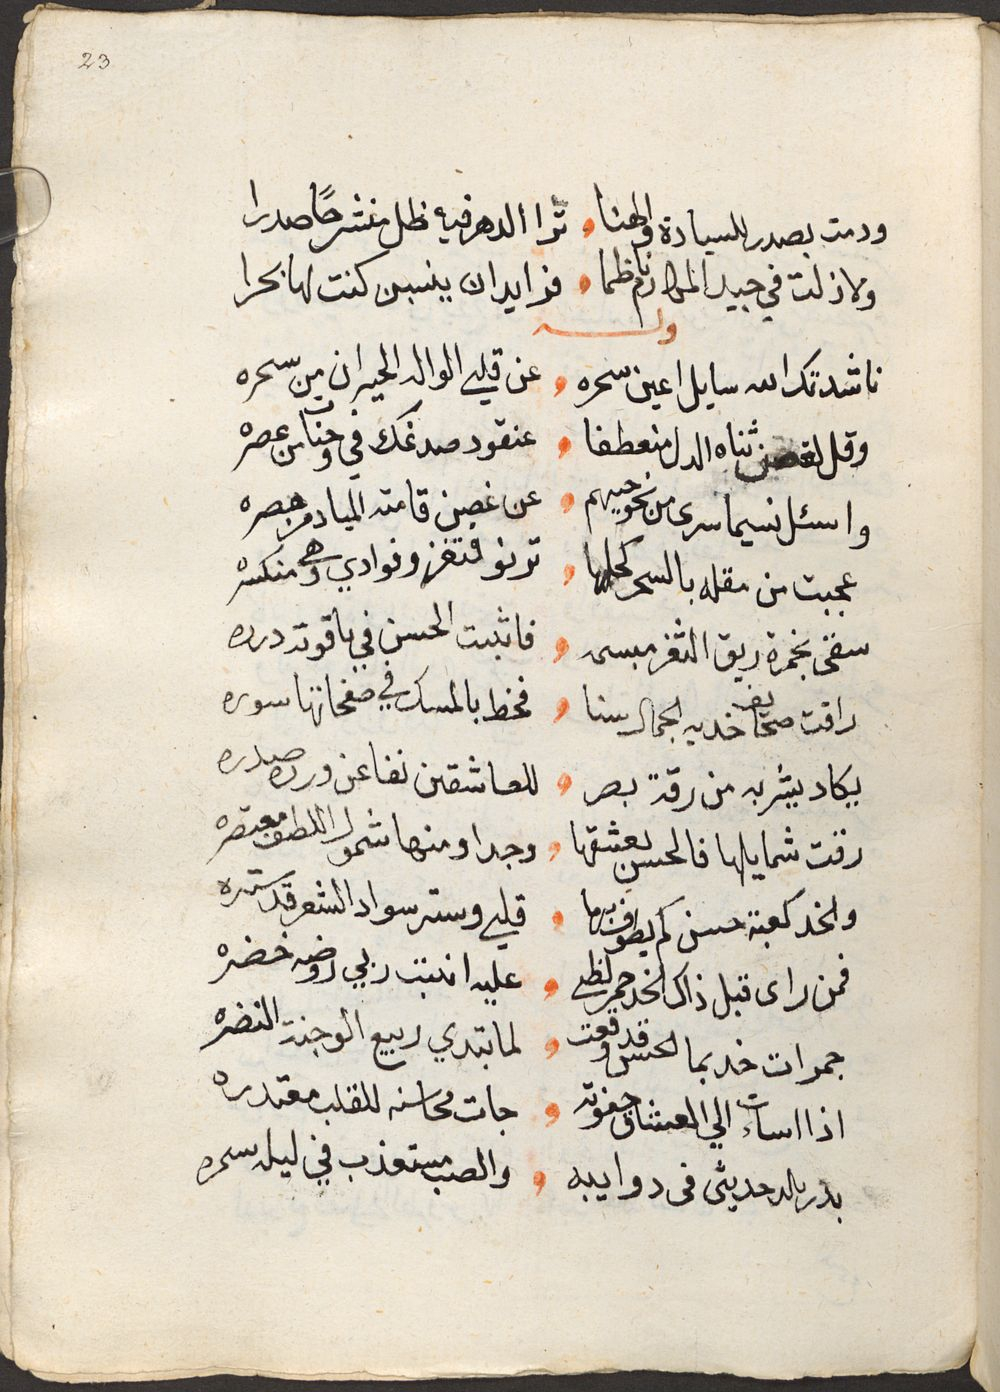 23
ودمت بصدر للسيادة والهنا ، ترا الدهر فيه ظل منشرحًا صدرا
ولا زلت في جيد المكارم ناظما ، فرايد ان ينسبن كنت لها بحرا
وله
ناشدتك الله سايل اعين سحره ، عن قلبي الواله الحيران من سحره
وقل لغصن ثناه الدل منعطفا ، عنقود صدغك في وجنات من عصره
واسئل نسيما سرى من نحو حيهم ، عن غصن قامته المياد من هصره
عجبت من مقله بالسحر كحلها ، ترنو فتغز وفوادي وهي منكسره
سقى بخمرة ريق الثغر مبسمه ، فاثبت الحسن في ياقوته درره
راقت صحايف خديه الجمال سنا ، فخط بالمسك في صفحاتها سوره
يكاد يشربه من رقة بصر ، للعاشقين نفا عن ورده صدره
رقت شمايلها فالحسن يعشقها ، وجدا ومنها شمول اللطف معتصره
والخد كعبة حسن كم يطوف بها ، قلبي وستر سواد الشعر قد ستره
فمن راى قبل ذاك الخد جمر لظى ، عليه انبتت ربي روضه خضره
جمرات خد بما الحسن قد وقعت ، لما تبدي ربيع الوجنة النضره
اذا اسات الي العشاق جفوته ، جات محاسنه للقلب معتذره
بدر يلد حديثى فى دوايبه ، والصب مستعذب في ليله سحره